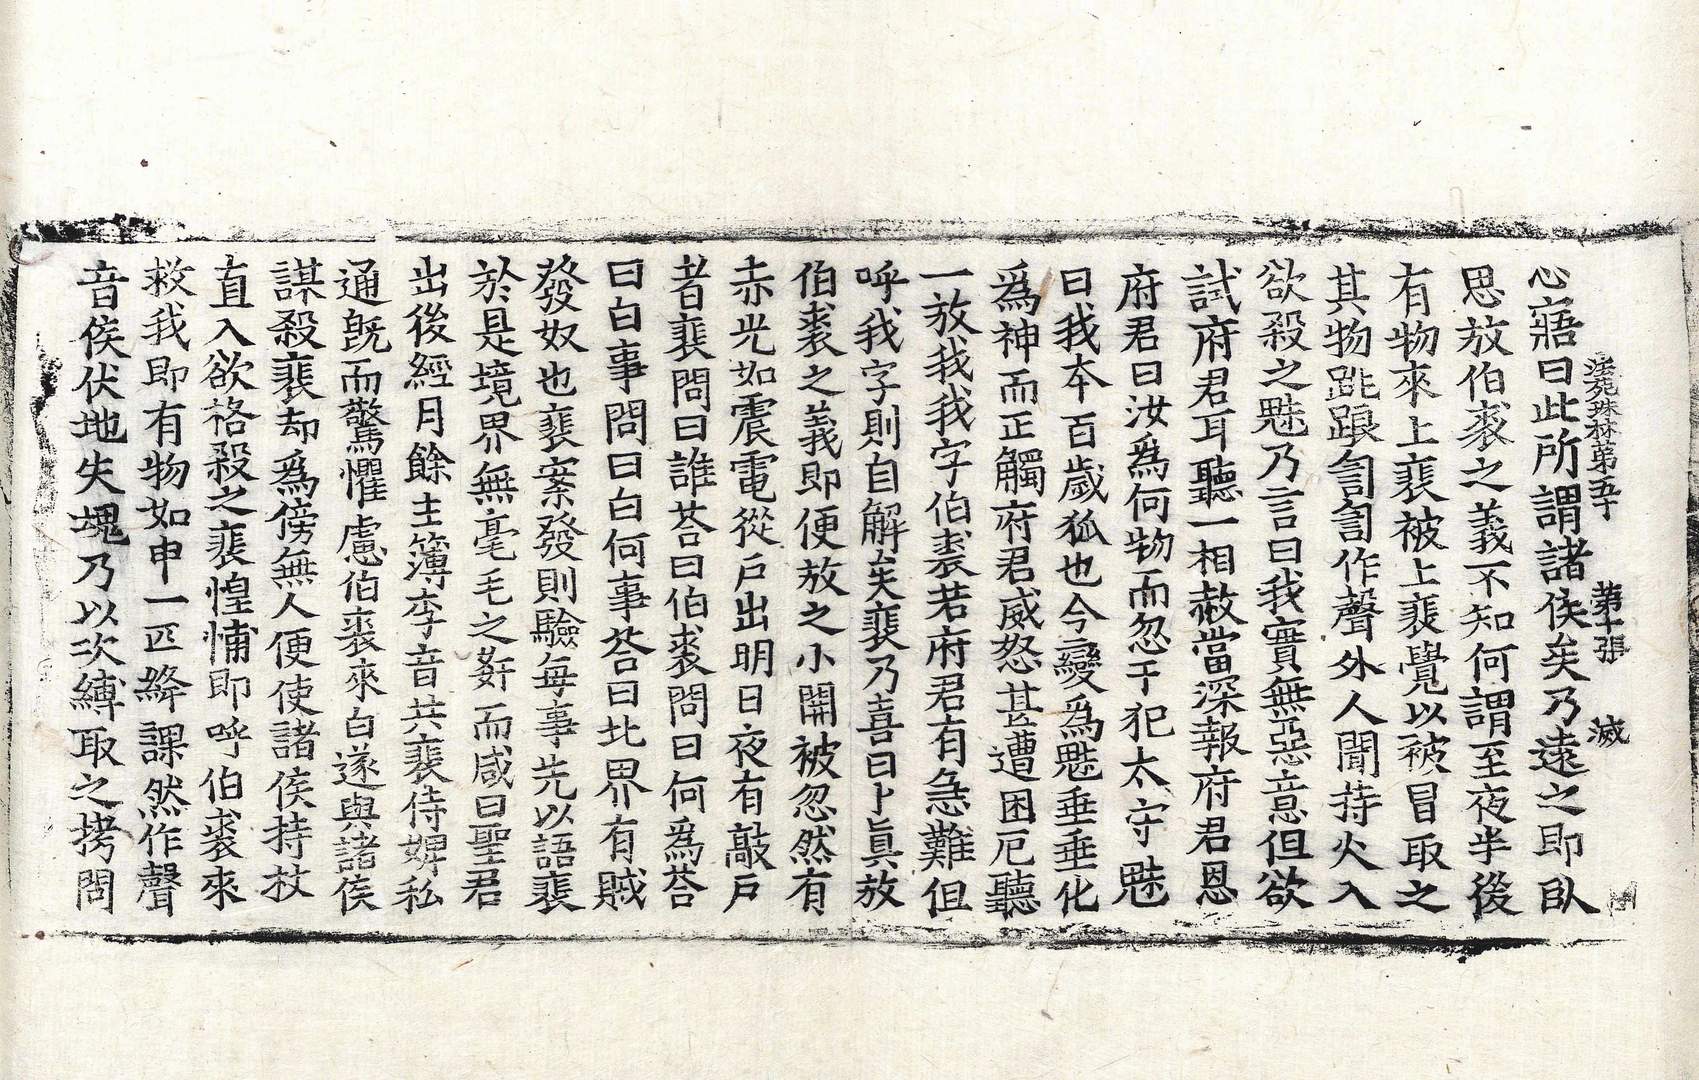 心寤曰此所謂諸侯矣乃遠之即臥
法苑珠林第五十 第十張 滅
思放伯裘之義不知何謂至夜半後
有物來上裴被上裴覺以被冒取之
其物跳踉訇訇作聲外人聞持火入
欲殺之魅乃言曰我實無惡意但欲
試府君耳聽一相赦當深報府君恩
府君曰汝為何物而忽干犯太守魅
曰我本百歲狐也今變為魅垂垂化
為神而正觸府君威怒甚遭困厄聽
一放我我字伯裘若府君有急難但
呼我字則自解矣裴乃喜曰卜真放
伯裘之義即便放之小開被忽然有
赤光如震電從戶出明日夜有敲戶
者裴問曰誰荅曰伯裘問曰何為荅
曰白事問曰白何事荅曰北界有賊
發奴也裴案發則驗每事先以語裴
於是境界無毫毛之姧而咸曰聖君
出後經月餘主簿李音共裴侍婢私
通旣而驚懼慮伯裘來白遂與諸侯
謀殺裴却為傍無人便使諸侯持杖
直入欲格殺之裴惶悑即呼伯裘來
救我即有物如申一匹絳課然作聲
音侯伏地失魂乃以次縛取之拷問